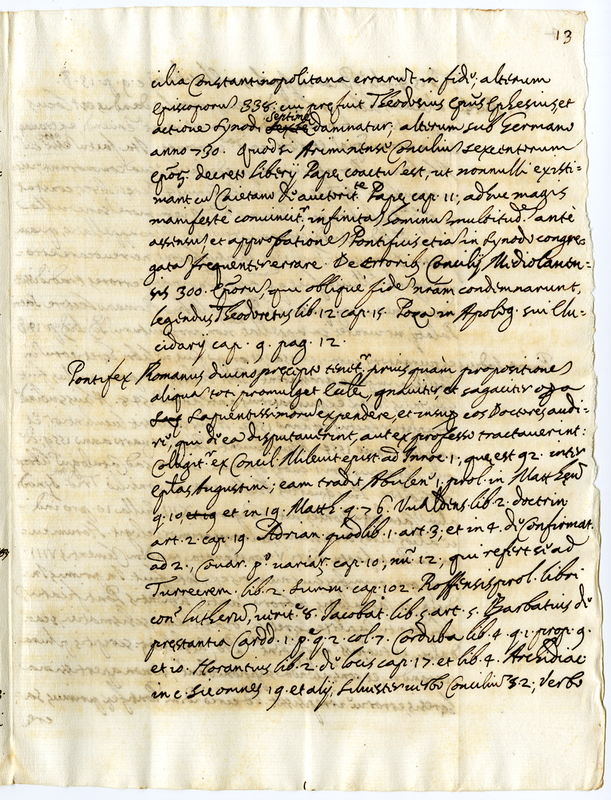 13
cilia Constantinopolitana errarut in fide, alterum
episcoporu 338. cui prefuit Theodosius Epus Ephesius, et
actione synodi septime daminatur, alterum sub Germano
anno 730. Quodsi Ariminense Conciliu sexcenterum
decreto liberij Pape coactu est, ut nonnulli existi=
mant cu Caietano de auctorit.e Pape cap. 11, adhuc magis
manifeste convincit.r, infinita hominu multitud.e ante
assensu et approbatione Pontificis etia in synodo congre=
gata frequenter errare. De erroribus Concilij Mediolanen=
sis 300. Eporu, qui oblique fide nram condemnarunt,
legendus Theodoretus lib. 12. cap. 15. in Apolog. sui Elu=
cidarij cap. 9. pag. 12.
Pontifex Romanus divino precepto tenet.r, priusquam propositione
aliqua toti promulget, graviter et sagaciter
Sapientissimoru expendere, et insup eos Doctores audi=
re, qui de ea disputaverint, aut ex professo tractaverint:
Colligit.r ex Concil. Milevit epist ad Innoc. 1. que est 92. inter
Eplas Augustini; eam tradit Abulen. 1. prol. in Matth
q. 10 et 19 et in 19. Matth. q. 76. Vualdens lib. 2. doctrin
art. 2. cap. 19. Adrian quodlib. 1. art. 3; et in 4. de Confirmat.
ad 2., Covar. p.e variar. cap. 10, nu. 12; qui refert
Turrecrem. lib. 2. Summ. cap. 102. Roffensis prol. libri
con. Lutheru, verit.e 8. Jacobat. lib. 5 art. 5. Barbatius de
prestantia Cardd. 1. p.e q. 2. col. 7. Corduba lib. 4. q. 1. prop. 9.
et 10. Horantius lib. 2. de locis cap. 17. et lib. 4. Archidiac
in c. sic omnes 19. et alij, Silvester verbo Conciliu § 2; verbo